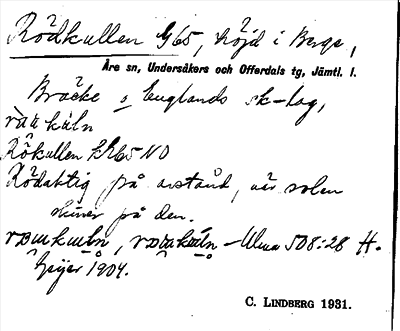 Rödkullen G65, höjd i Berge,
Åre sn, Undersåkers och Offerdals tg, Jämtl. l.
Bräcke o Englands sk-lag,
Rökullen kR65 NO
Rödaktig på avstånd, när solen
skiner på den.
Ulma 508:28 H.
Geijer 1904.
C. LINDBERG 1931.